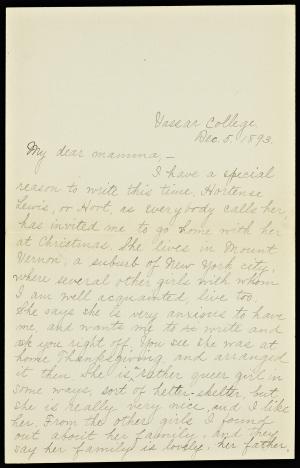 Vassar College.
Dec. 5, 1893.
My dear mamma,—
I have a special
reason to write this time. Hortense
Lewis, or Hoot, as everybody calls her,
has invited me to go home with her
at Christmas. She lives in Mount
Vernon, a suburb of New York city,
where several other girls with whom
I am well acquainted, live too.
She says she is very anxious to have
me, and wants me to write and
ask you right off. You see she was at
home Thanksgiving, and arranged
it then. She is rather queer girl in
some ways, sort of helter-skelter, but
she is really very nice, and I like
her. From the other girls I found
out about her family, and they
say her family is lovely, her father,